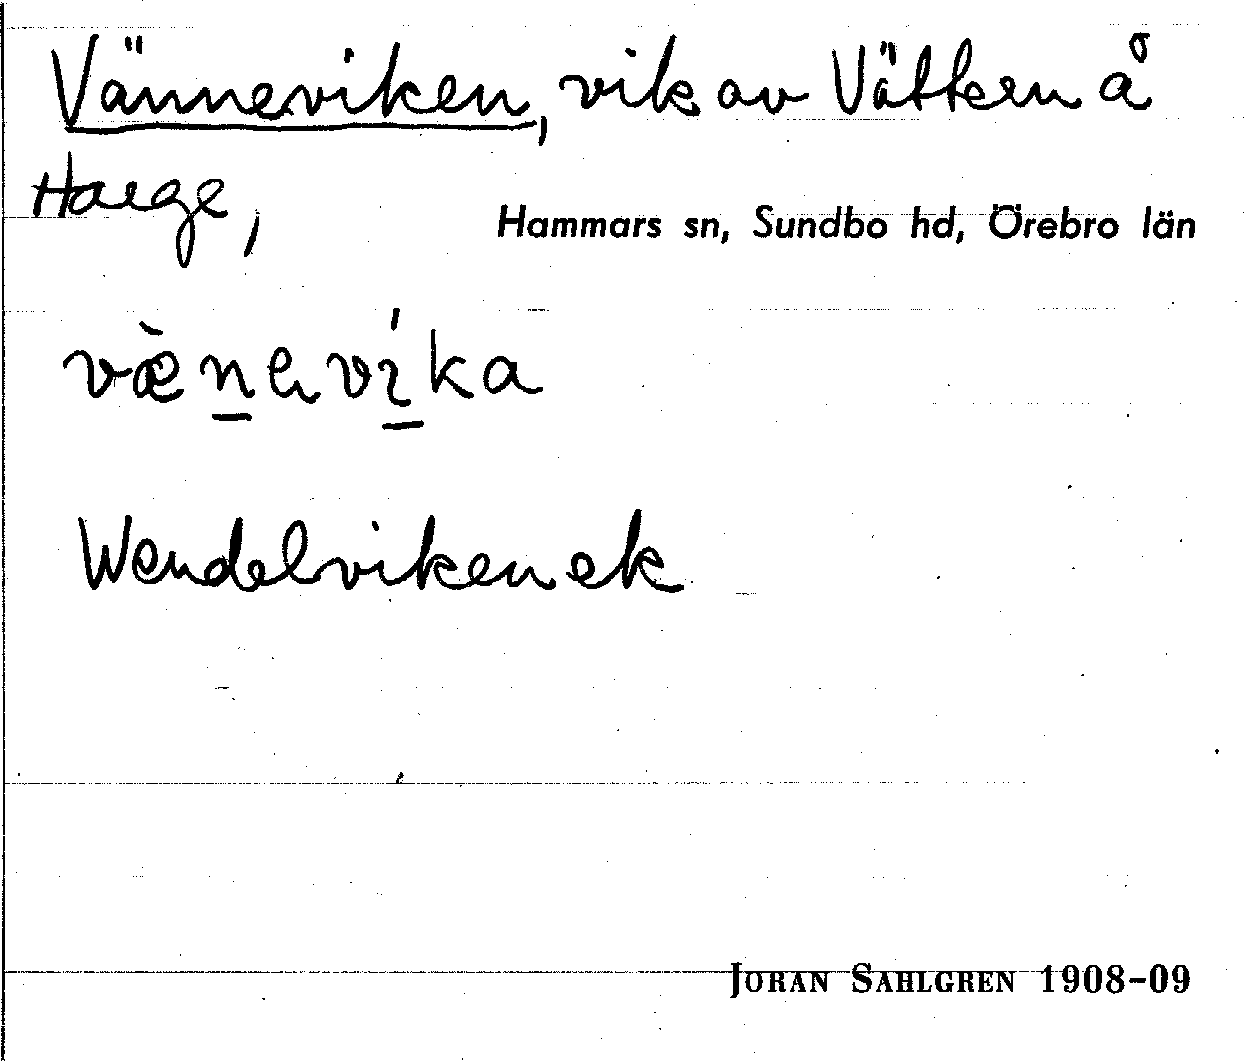 Vänneviken, vik av Vättern å
Harge,
Hammars sn, Sundbo hd, Örebro län
væ̀nevíka
Wendelviken ek
JORAN SAHLGREN 1908-09